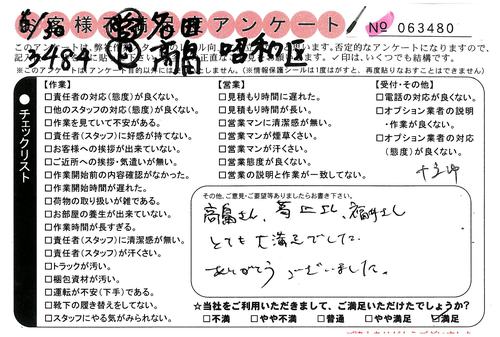 お客様不満足度アンケート
№ 063480
8/30
3484
高畠
昭和区
このアンケートは、弊社
否定的なアンケートになりますので、
✓印は、いくつでも結構です。
※このアンケートは
(※情報保護シールは1度はがすと、再度貼りなおすことはできません)
チェックリスト
【作業】
□責任者の対応(態度)が良くない。
□他のスタッフの対応(態度)が良くない。
□作業を見ていて不安がある。
□責任者(スタッフ)に好感が持てない。
□お客様への挨拶が出来ていない。
□ご近所への挨拶・気遣いが無い。
□作業開始前の内容確認がなかった。
□作業開始時間が遅れた。
□荷物の取り扱いが雑である。
□お部屋の養生が出来ていない。
□作業時間が長すぎる。
□責任者(スタッフ)に清潔感が無い。
□責任者(スタッフ)が汗くさい。
□トラックが汚い。
□梱包資材が汚い。
□運転が不安(下手)である。
□靴下の履き替えをしてない。
□スタッフにやる気がみられない。
【営業】
□見積もり時間に遅れた。
□見積もり時間が長い。
□営業マンに清潔感が無い。
□営業マンが煙草くさい。
□営業マンが汗くさい。
□営業態度が良くない。
□営業の説明と作業が一致してない。
【受付・その他】
□電話の対応が良くない。
□オプション業者の説明・作業が良くない。
□オプション業者の対応(態度)が良くない。
その他、ご意見・ご要望等ありましたらお書き下さい。
高畠さん、
福井さん
とても大満足でした
ありがとうございました。
☆当社をご利用いただきまして、ご満足いただけたでしょうか?
□不満 □やや不満 □普通 □やや満足 ☑満足